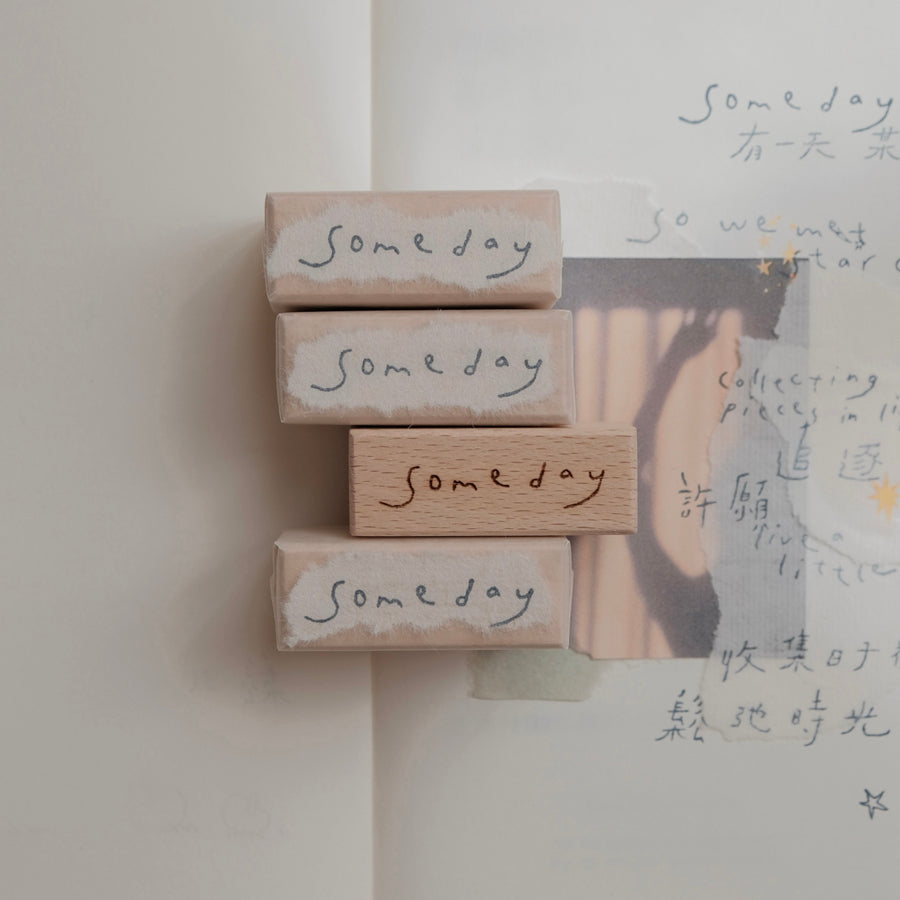 someday
有一天 某
so we met
star
collecting
pieces in li
追逐
許願
live a
little
收集时
鬆弛時光
someday
someday
someday
someday